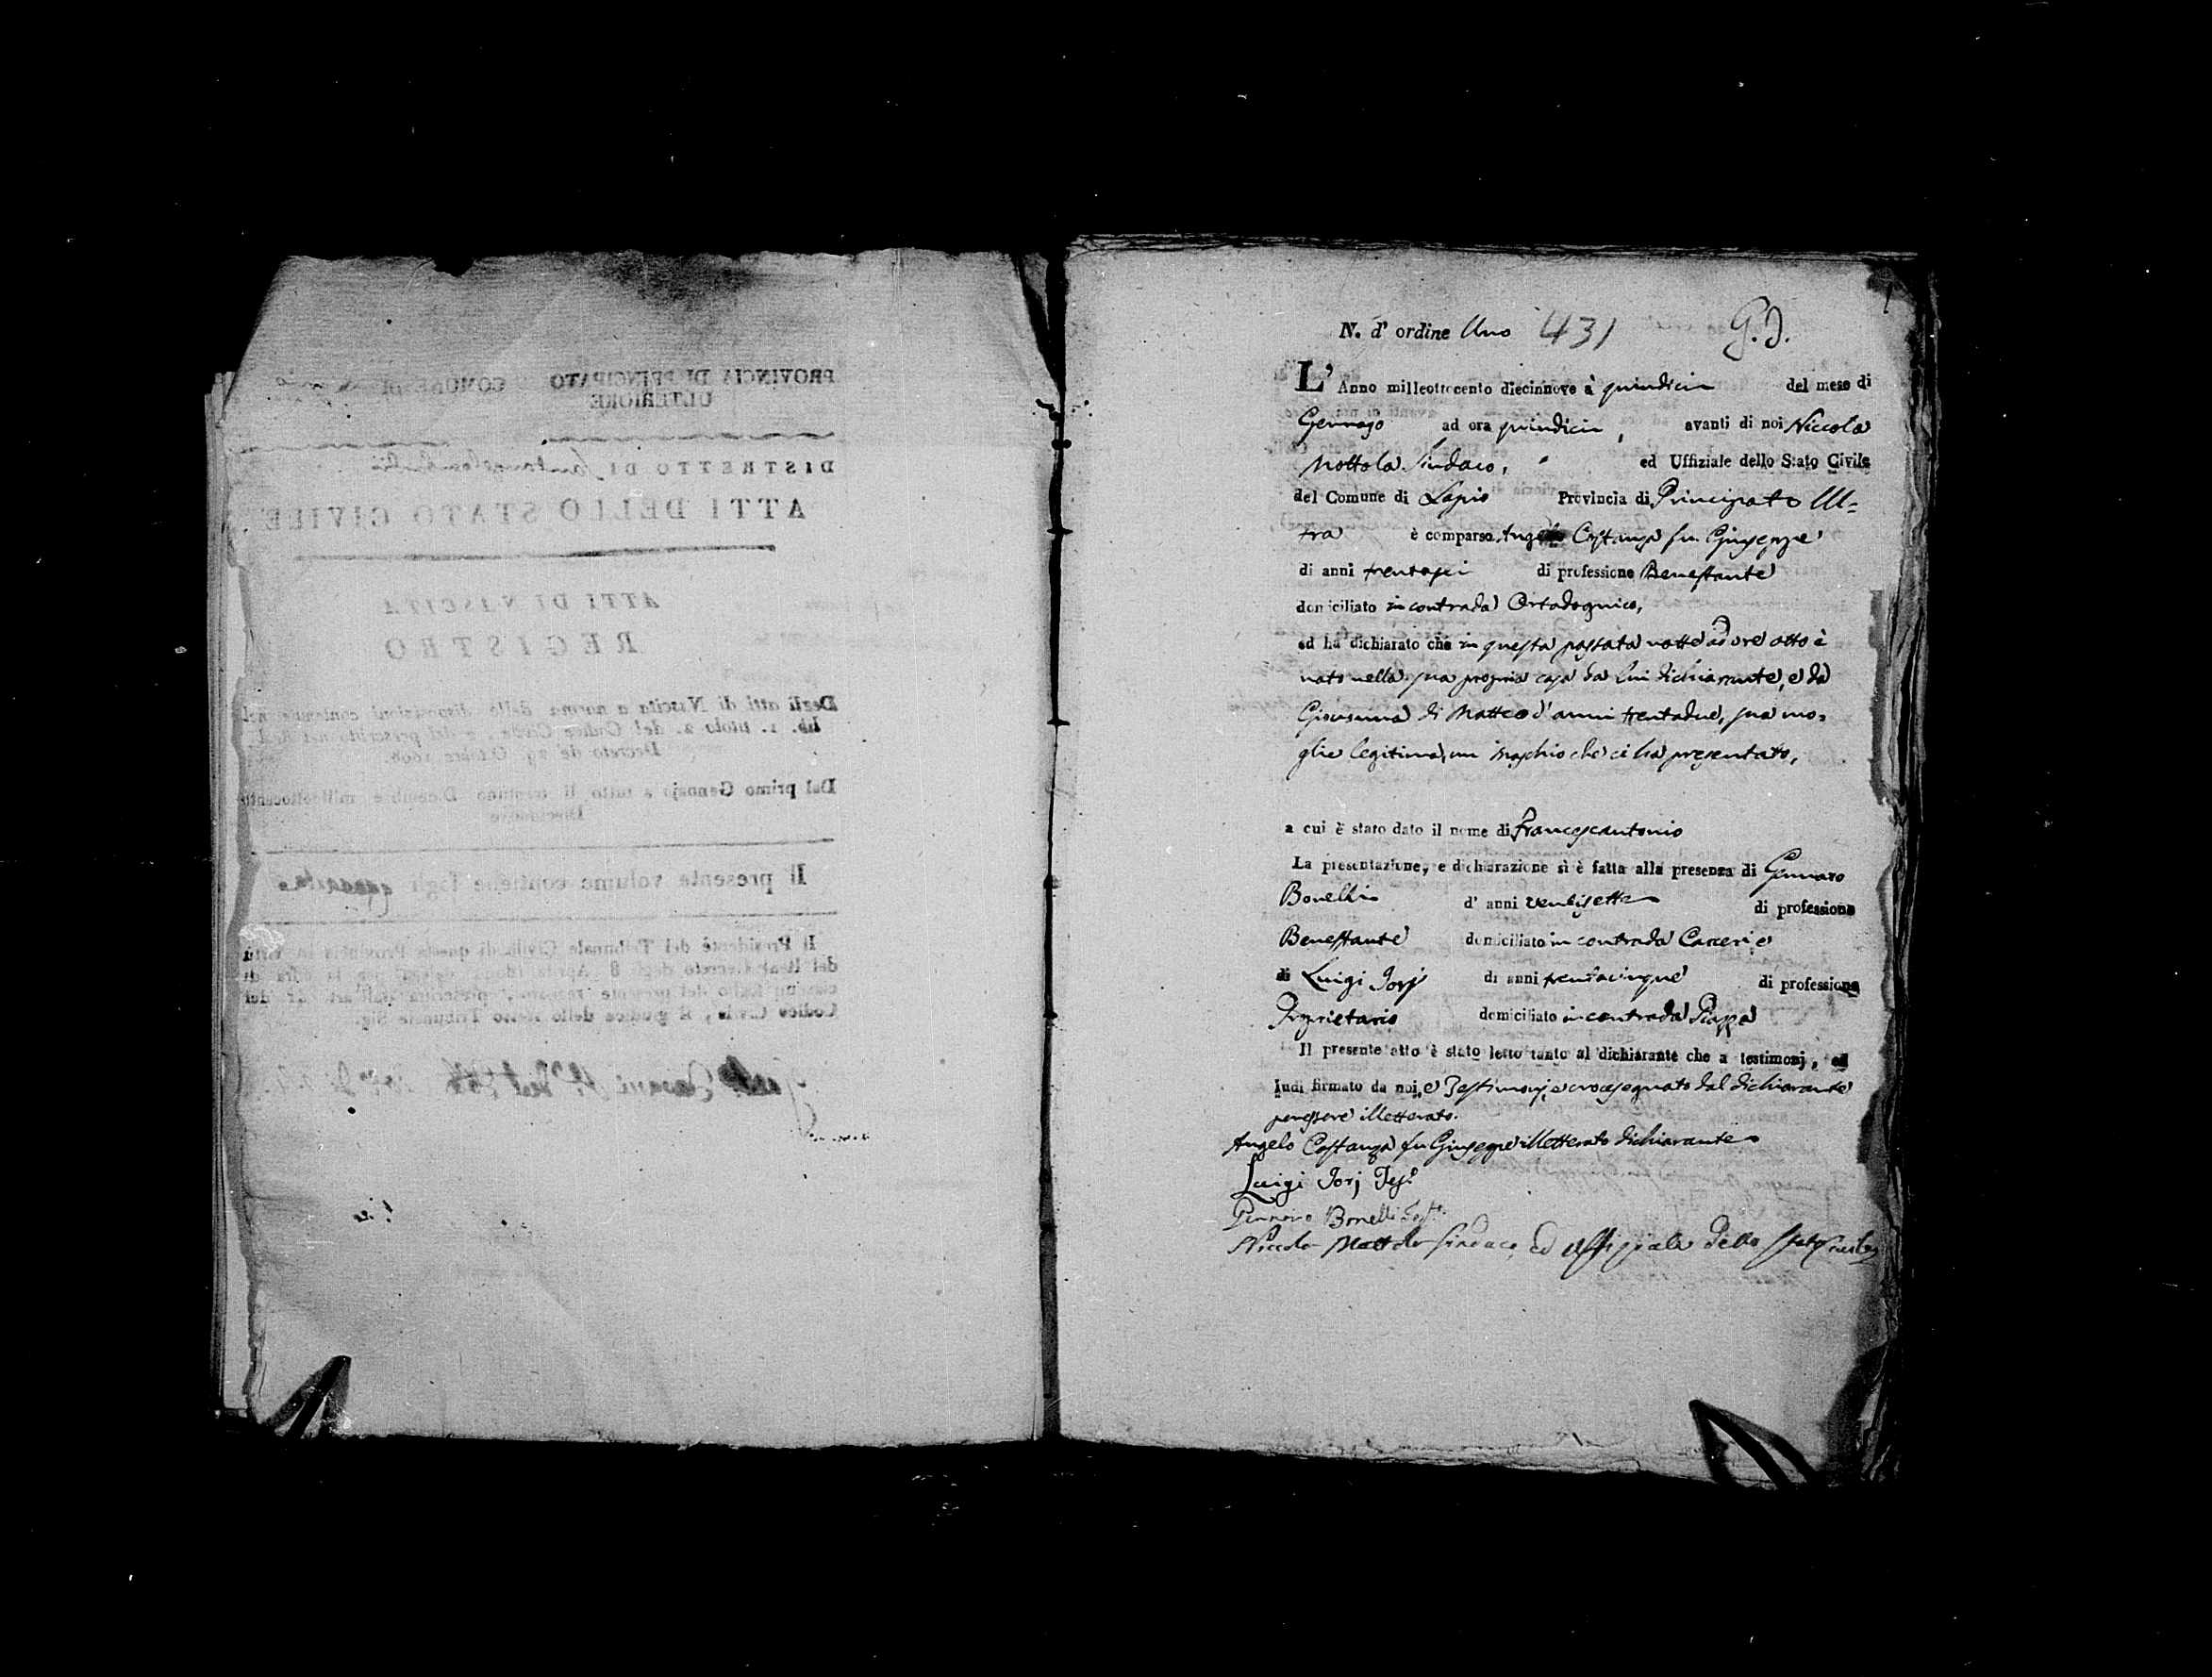 PROVINCIA DI PRINCIPATO ULTERIORE COMUNE DI
DISTRETTO DI
ATTI DELLO STATO CIVILE
ATTI DI NASCITA
REGISTRO
Degli atti di Nascita a norma delle disposizioni contenute nel
lib. 1. titolo 2. del Codice Civile, e del prescritto nel Real
Decreto de' 29 Ottobre 1808.
Dal primo Gennajo a tutto il trentuno Dicembre milleottocento
Il presente volume contiene fogli
Il Presidente del Tribunale Civile di questa Provincia in virtù
del Real decreto degli 8 Aprile
Codice Civile, il giudice dello stesso Tribunale Sig.
N. d' ordine Uno 431 G. D.
L' Anno milleottocento diecinnove à quindici del mese di
Gennajo ad ora quindici, avanti di noi Niccola
Nottola Sindaco, ed Uffiziale dello Stato Civile
del Comune di Lapio Provincia di Principato Ul=
tra è comparso Angelo Costanza fu Giuseppe
di anni trentasei di professione Benestante
domiciliato in contrada Ortadognico,
ed ha dichiarato che in questa passata notte ad ore otto è
nato nella sua propria casa da lui dichiarante, e da
Giovanna di Matteo d'anni trentadue, sua mo=
glie legitima, un maschio che ci ha presentato,
a cui è stato dato il nome di Francescantonio
La presentazione, e dichiarazione si è fatta alla presenza di Gennaro
Bonelli d' anni ventisette di professione
Benestante domiciliato in contrada Carceri e
di Luigi Jorj di anni trentacinque di professione
Proprietario domiciliato in contrada Piazza
Il presente atto è stato letto tanto al dichiarante che a testimonj, ed
indi firmato da noi, e Testimonj, e crocesegnato dal dichiarante
per essere illetterato.
Angelo Costanza fu Giuseppe illetterato dichiarante
Luigi Jorj Tes.º
Gennaro Bonelli Test.
Niccola Nottola Sindaco, ed uffiziale dello stato Civile